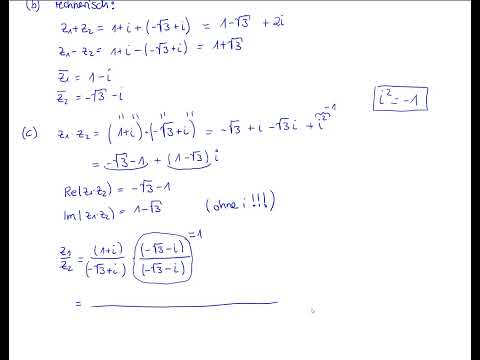 (b) rechnerisch:
z₁+z₂ = 1+i+(-√3+i) = 1-√3 + 2i
z₁-z₂ = 1+i-(-√3+i) = 1+√3
z̅₁ = 1-i
z̅₂ = -√3-i
i² = -1
(c) z₁·z₂ = (1+i)·(-√3+i) = -√3 + i - √3i + i² -1
= -√3-1 + (1-√3)i
Re(z₁·z₂) = -√3-1
Im(z₁·z₂) = 1-√3 (ohne i !!!)
z₁/z₂ = (1+i)/(-√3+i) · (-√3-i)/(-√3-i) =1
=